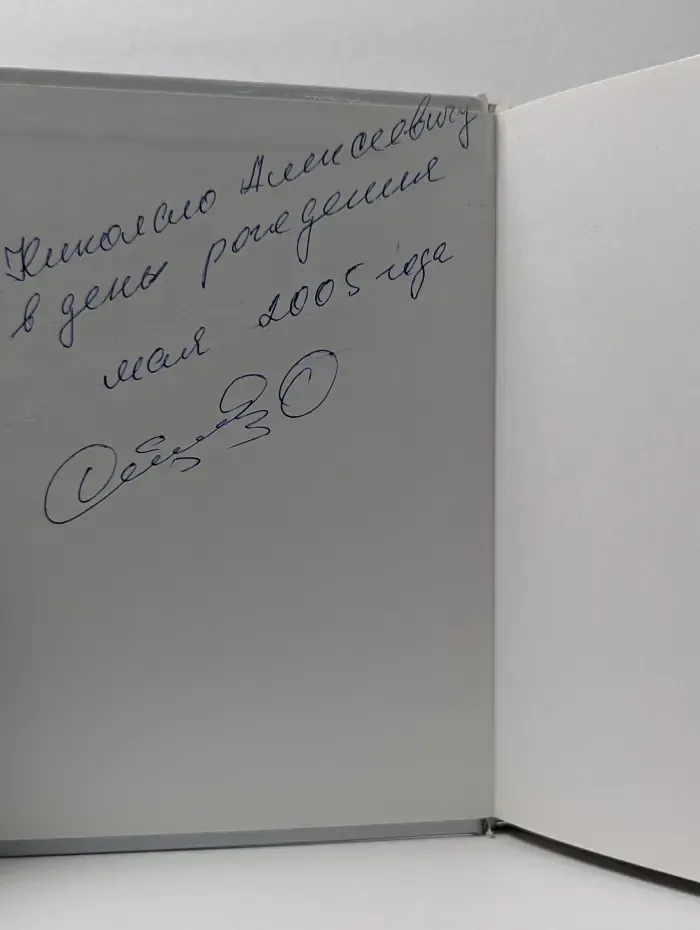 Николаю Алексеевичу
в день рождения
мая 2005 года